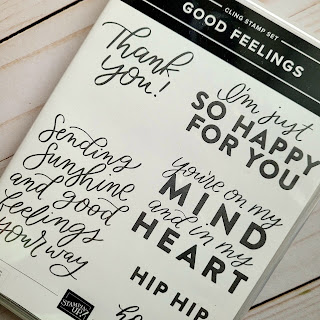 CLING STAMP SET
GOOD FEELINGS
Thank
you!
I'm just
SO HAPPY
FOR YOU
Sending
Sunshine
and good
feelings
your way
you're on my
MIND
and in my
HEART
HIP HIP
STAMPIN' UP!